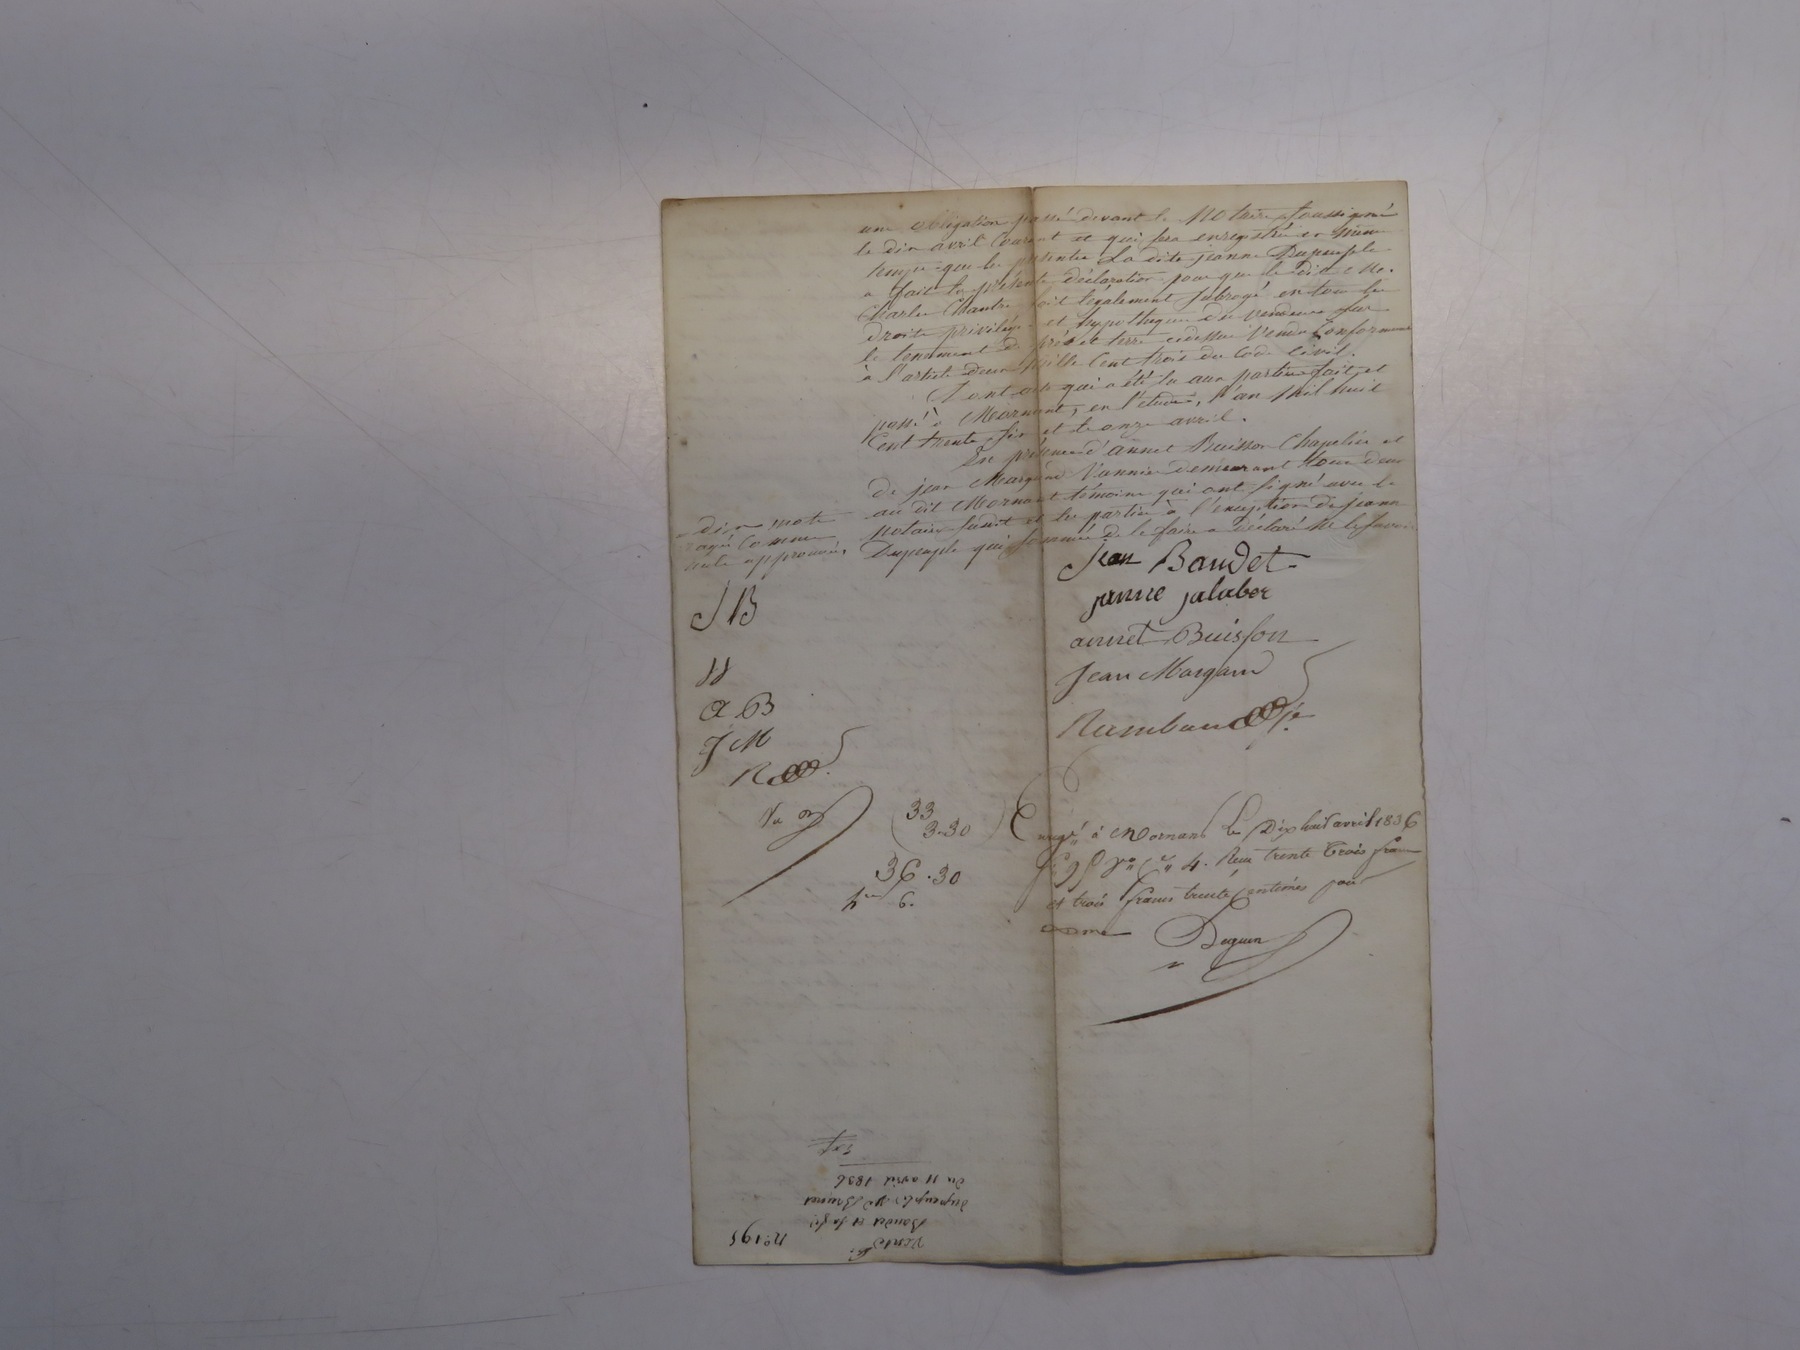 une obligation passé devant le Notaire soussigné
le dix avril Courant et qui sera enregistré en même
tems que les présentes La dite jeanne Dupeuple
a fait la présente déclaration pour que le dit Me.
Charles Chantre soit légalement subrogé en tous les
droits privilège et hypothèque du vendeur sur
le tenement de pré et terre cidessus Vendu Conformement
à l'article deux Mille Cent trois du Code Civil.
Dont acte qui a été lu aux parties fait et
passé à Mornant, en l'étude, l'an Mil huit
Cent trente six et le onze avril.
En présence d'annet Buisson Chapelier et
de jean Margand Vannier demeurant tous deux
au dit Mornant témoins qui ont signé avec le
notaire susdit et les parties à l'exception de jeanne
Dupeuple qui sommée de le faire a déclaré Ne le savoir
dix mots
rayé Comme
nuls approuvés
jean Baudet
janne jalaber
annet Buisson
Jean Margand
Rambaud
J B
JJ
a B
J M
R
Vu
33
3-30
36.30
6.
Enregé à Mornant le Dix huit avril 1836
4. Reçu trente trois francs
et trois francs trente Centimes pour
Deguen
n° 195
Vente
Baudet et sa fe
dupeuple Ve Brunet
du 11 avril 1836